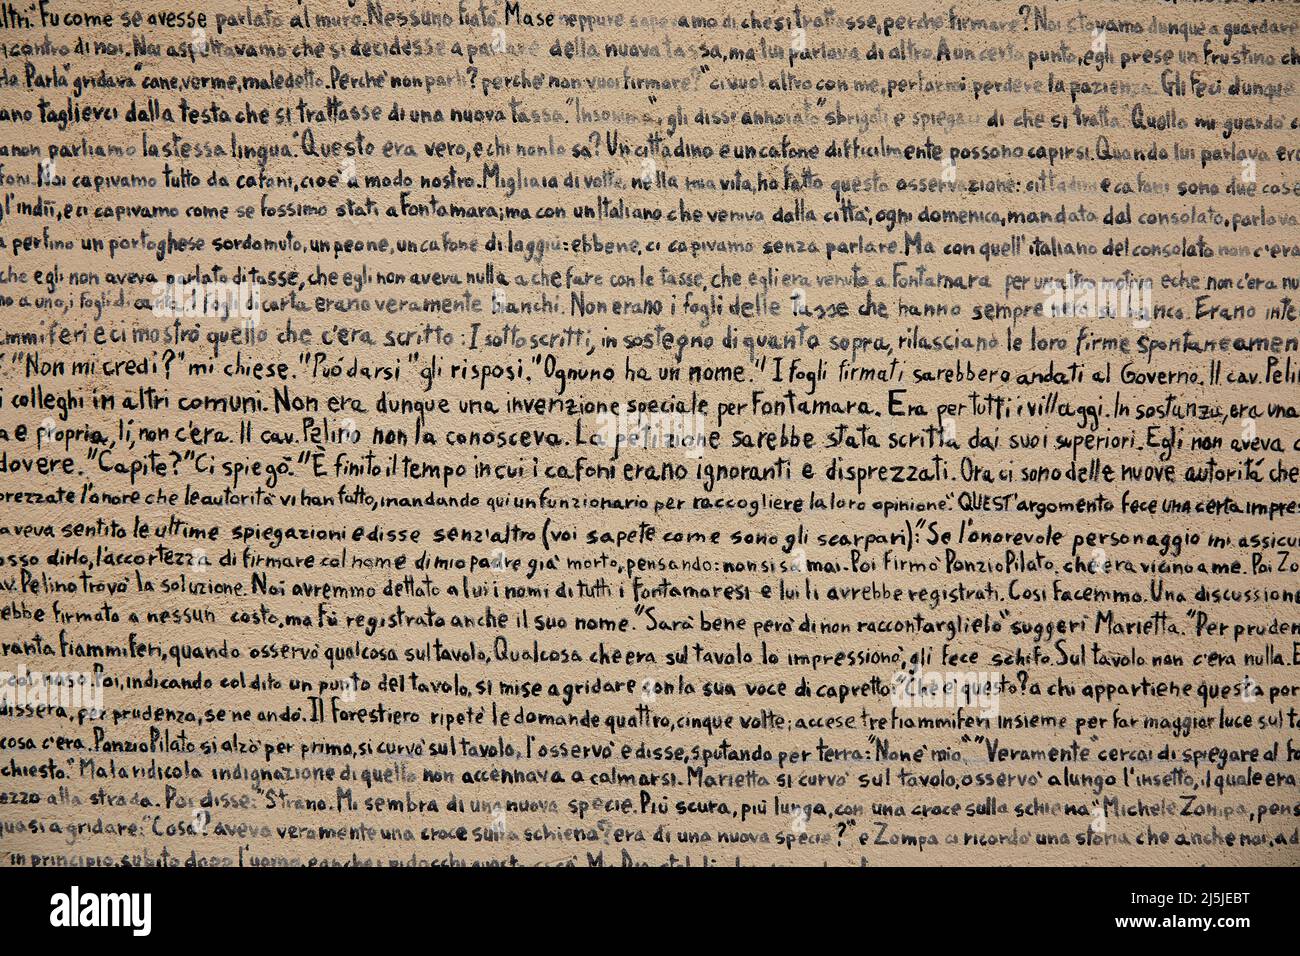 altri." Fu come se avesse parlato al muro. Nessuno fiatò. Ma se neppure sapevamo di che si trattasse, perché firmare? Noi stavamo dunque a guardare
di noi. Noi aspettavamo che si decidesse a parlare della nuova tassa, ma lui parlava di altro. A un certo punto, egli prese un frustino ch
Parla" gridava "cane, verme, maledetto. Perche' non parli? perche' non vuoi firmare?" ci vuol altro con me, per farmi perdere la pazienza. Gli feci dunque
ano taglierci dalla testa che si trattasse di una nuova tassa. "Insomma", gli dissi annoiato "sbrigati e spiegaci di che si tratta". Quello mi guardò c
non parliamo la stessa lingua". Questo era vero, e chi non lo sa? Un cittadino e un cafone difficilmente possono capirsi. Quando lui parlava era
foni. Noi capivamo tutto da cafoni, cioè a modo nostro. Migliaia di volte, nella mia vita, ho fatto questa osservazione: cittadini e cafoni sono due cose
gl'indii, e ci capivamo come se fossimo stati a Fontamara; ma con un Italiano che veniva dalla città, ogni domenica, mandato dal consolato, parlava
perfino un portoghese sordomuto, un peone, un cafone di laggiù: ebbene, ci capivamo senza parlare. Ma con quell'italiano del consolato non c'era
che egli non aveva parlato di tasse, che egli non aveva nulla a che fare con le tasse, che egli era venuto a Fontamara per un altro motivo e che non c'era nu
no a uno, i fogli di carta. I fogli di carta erano veramente bianchi. Non erano i fogli delle tasse che hanno sempre nero su bianco. Erano inte
mmiferi e ci mostrò quello che c'era scritto: I sottoscritti, in sostegno di quanto sopra, rilasciano le loro firme spontaneamen
"Non mi credi?" mi chiese. "Può darsi" gli risposi. "Ognuno ha un nome." I fogli firmati sarebbero andati al Governo. Il cav. Peli
i colleghi in altri comuni. Non era dunque una invenzione speciale per Fontamara. Era per tutti i villaggi. In sostanza, era una
a e propria, lì, non c'era. Il cav. Pelino non la conosceva. La petizione sarebbe stata scritta dai suoi superiori. Egli non aveva
dovere. "Capite?" Ci spiegò. "È finito il tempo in cui i cafoni erano ignoranti e disprezzati. Ora ci sono delle nuove autorità che
prezzate l'onore che le autorità vi han fatto, mandando qui un funzionario per raccogliere la loro opinione". QUEST'argomento fece una certa impres
aveva sentito le ultime spiegazioni e disse senz'altro (voi sapete come sono gli scarpari): "Se l'onorevole personaggio mi assicu
osso dirlo, l'accortezza di firmare col nome di mio padre già morto, pensando: non si sa mai. Poi firmò Ponzio Pilato, che era vicino a me. Poi Zo
av. Pelino trovò la soluzione. Noi avremmo dettato a lui i nomi di tutti i Fontamaresi e lui li avrebbe registrati. Così facemmo. Una discussione
ebbe firmato a nessun costo, ma fu registrato anche il suo nome. "Sarà bene però di non raccontarglielo" suggerì Marietta. "Per pruden
ranta fiammiferi, quando osservò qualcosa sul tavolo. Qualcosa che era sul tavolo lo impressionò, gli fece schifo. Sul tavolo non c'era nulla. E
col naso. Poi, indicando col dito un punto del tavolo, si mise a gridare con la sua voce di capretto: "Che è questo? a chi appartiene questa por
dissera, per prudenza, se ne andò. Il forestiero ripetè le domande quattro, cinque volte; accese tre fiammiferi insieme per far maggior luce sul ta
cosa c'era. Ponzio Pilato si alzò per primo, si curvò sul tavolo, l'osservò e disse, sputando per terra: "Non è mio". "Veramente" cercai di spiegare al fo
chiesto." Ma la ridicola indignazione di quello non accennava a calmarsi. Marietta si curvò sul tavolo, osservò a lungo l'insetto, il quale era
ezzo alla strada. Poi disse: "Strano. Mi sembra di una nuova specie. Più scura, più lunga, con una croce sulla schiena". Michele Zompa, pens
quasi a gridare: "Cosa? aveva veramente una croce sulla schiena? era di una nuova specie?" e Zompa ci ricordò una storia che anche noi, ad
in principio, subito dopo l'uomo,
alamy
Image ID: 2J5JEBT
www.alamy.com